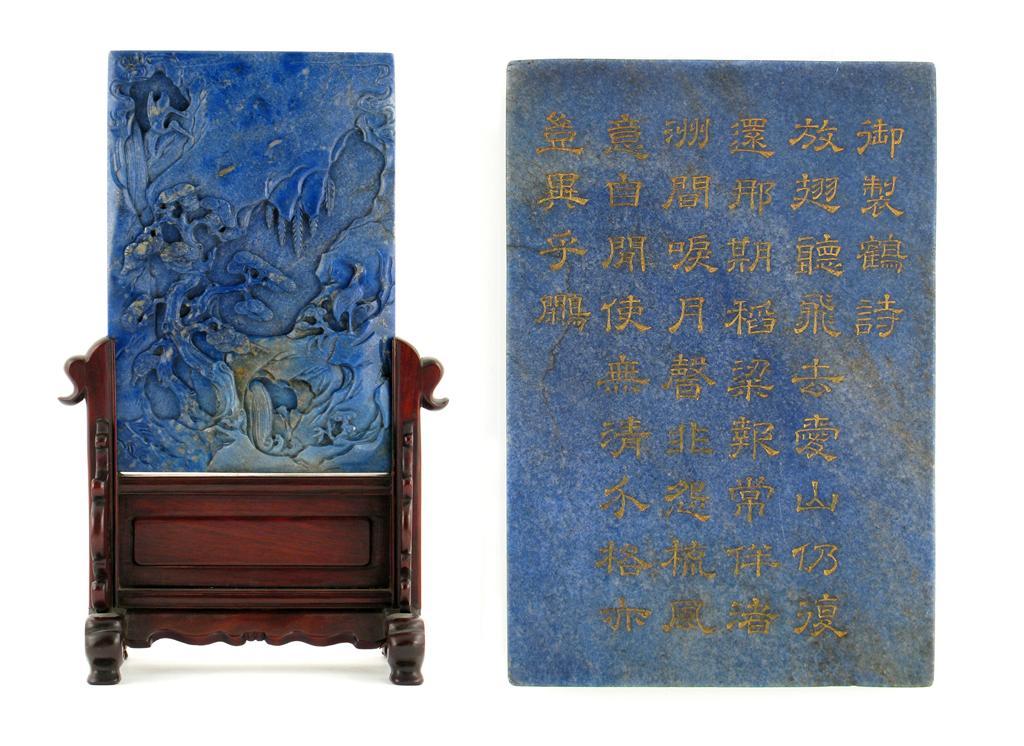 御製鶴詩
放翅聽飛去愛山仍復
還那期稻粱報常伴渚
洲間唳月聲非怨梳風
意自閒使無清介格亦
豈異乎鷴